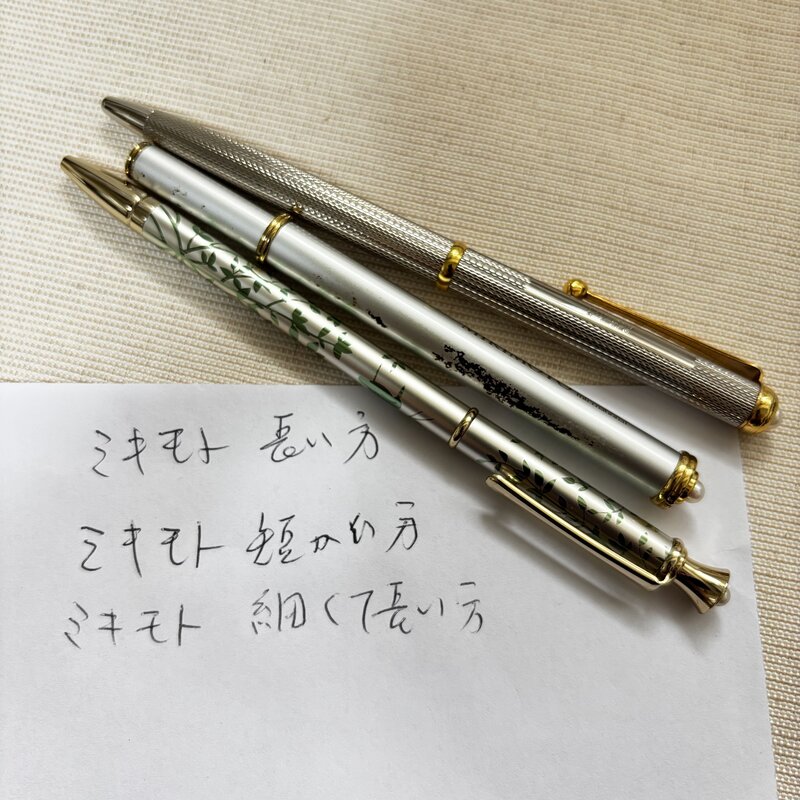 ミキモト 長い方
ミキモト 短かい方
ミキモト 細くて長い方